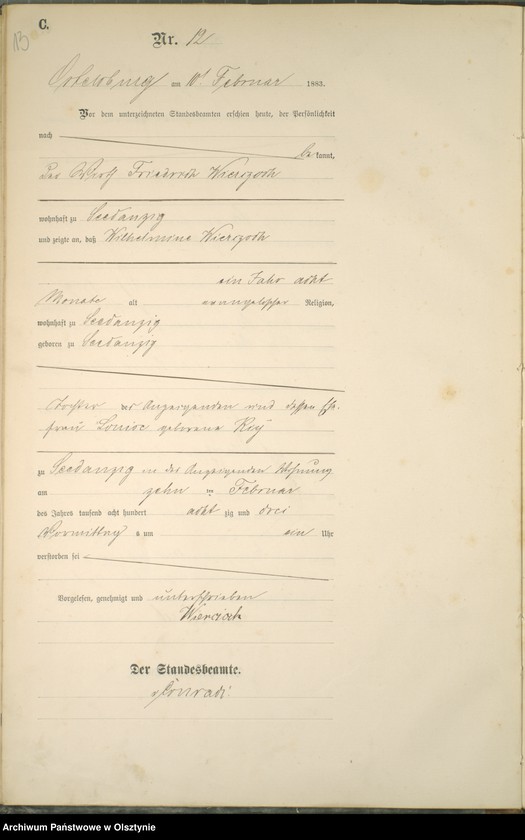 C.
13
Nr. 12
Ortelsburg am 10t Februar 1883.
Vor dem unterzeichneten Standesbeamten erschien heute, der Persönlichkeit
nach
be kannt,
Der Wirth Friedrich
wohnhaft zu Seedanzig
und zeigte an, daß Wilhelmine
ein Jahr acht
Monate alt evangelischer Religion,
wohnhaft zu Seedanzig
geboren zu Seedanzig
Tochter des Anzeigenden und dessen Ehe-
frau Louise geborene Rey
zu Seedanzig in des Anzeigenden Wohnung
am zehn ten Februar
des Jahres tausend acht hundert acht zig und drei
Vormittag s um ein Uhr
verstorben sei
Vorgelesen, genehmigt und unterschrieben
Der Standesbeamte.
Conradi.
Archiwum Państwowe w Olsztynie